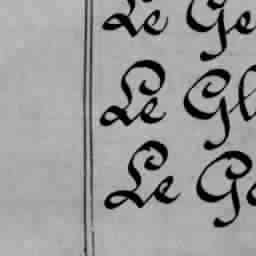 Le Ge
Le Gl
Le Ge